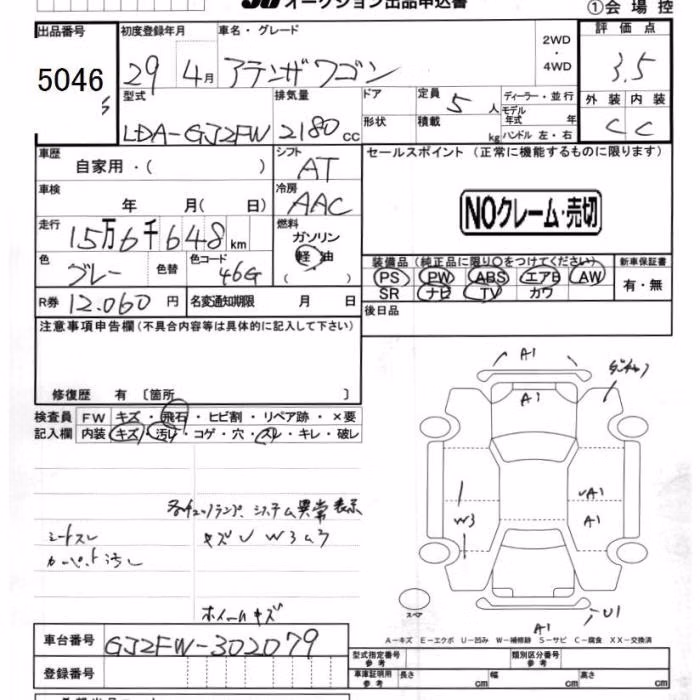 オークション出品申込書
①会場控
出品番号
初度登録年月
車名・グレード
2WD
・
4WD
評価点
5046
29 4月
アテンザワゴン
3.5
型式
排気量
ドア
定員 5 人
ディーラー・並行
モデル
年式 年
外装 内装
LDA-GJ2FW
2180cc
形状
積載 kg
ハンドル 左・右
C C
車歴
自家用・( )
シフト
AT
セールスポイント (正常に機能するものに限ります)
車検
年 月( 日)
冷房
AAC
NOクレーム・売切
走行
15万6千648km
燃料
ガソリン
軽油
( )
色
グレー
色替
色コード
46G
装備品 (純正品に限り○をつけてください)
新車保証書
PS PW ABS エアB AW
有・無
SR ナビ TV カワ
R券 12.060円
名変通知期限 月 日
後日品
注意事項申告欄(不具合内容等は具体的に記入して下さい)
修復歴 有 〔箇所 〕
検査員
記入欄
FW キズ・飛石・ヒビ割・リペア跡・×要
内装 キズ・汚レ・コゲ・穴・スレ・キレ・破レ
A1
A1
システム異常表示
シートスレ
カーペット汚し
W3
A1
A1
ホイールキズ
スペア
U1
A1
A−キズ E−エクボ U−凹み W−補修跡 S−サビ C−腐食 XX−交換済
車台番号 GJ2FW-302079
型式指定番号
参考
類別区分番号
参考
登録番号
車庫証明用
参考
長さ cm 幅 cm 高さ cm